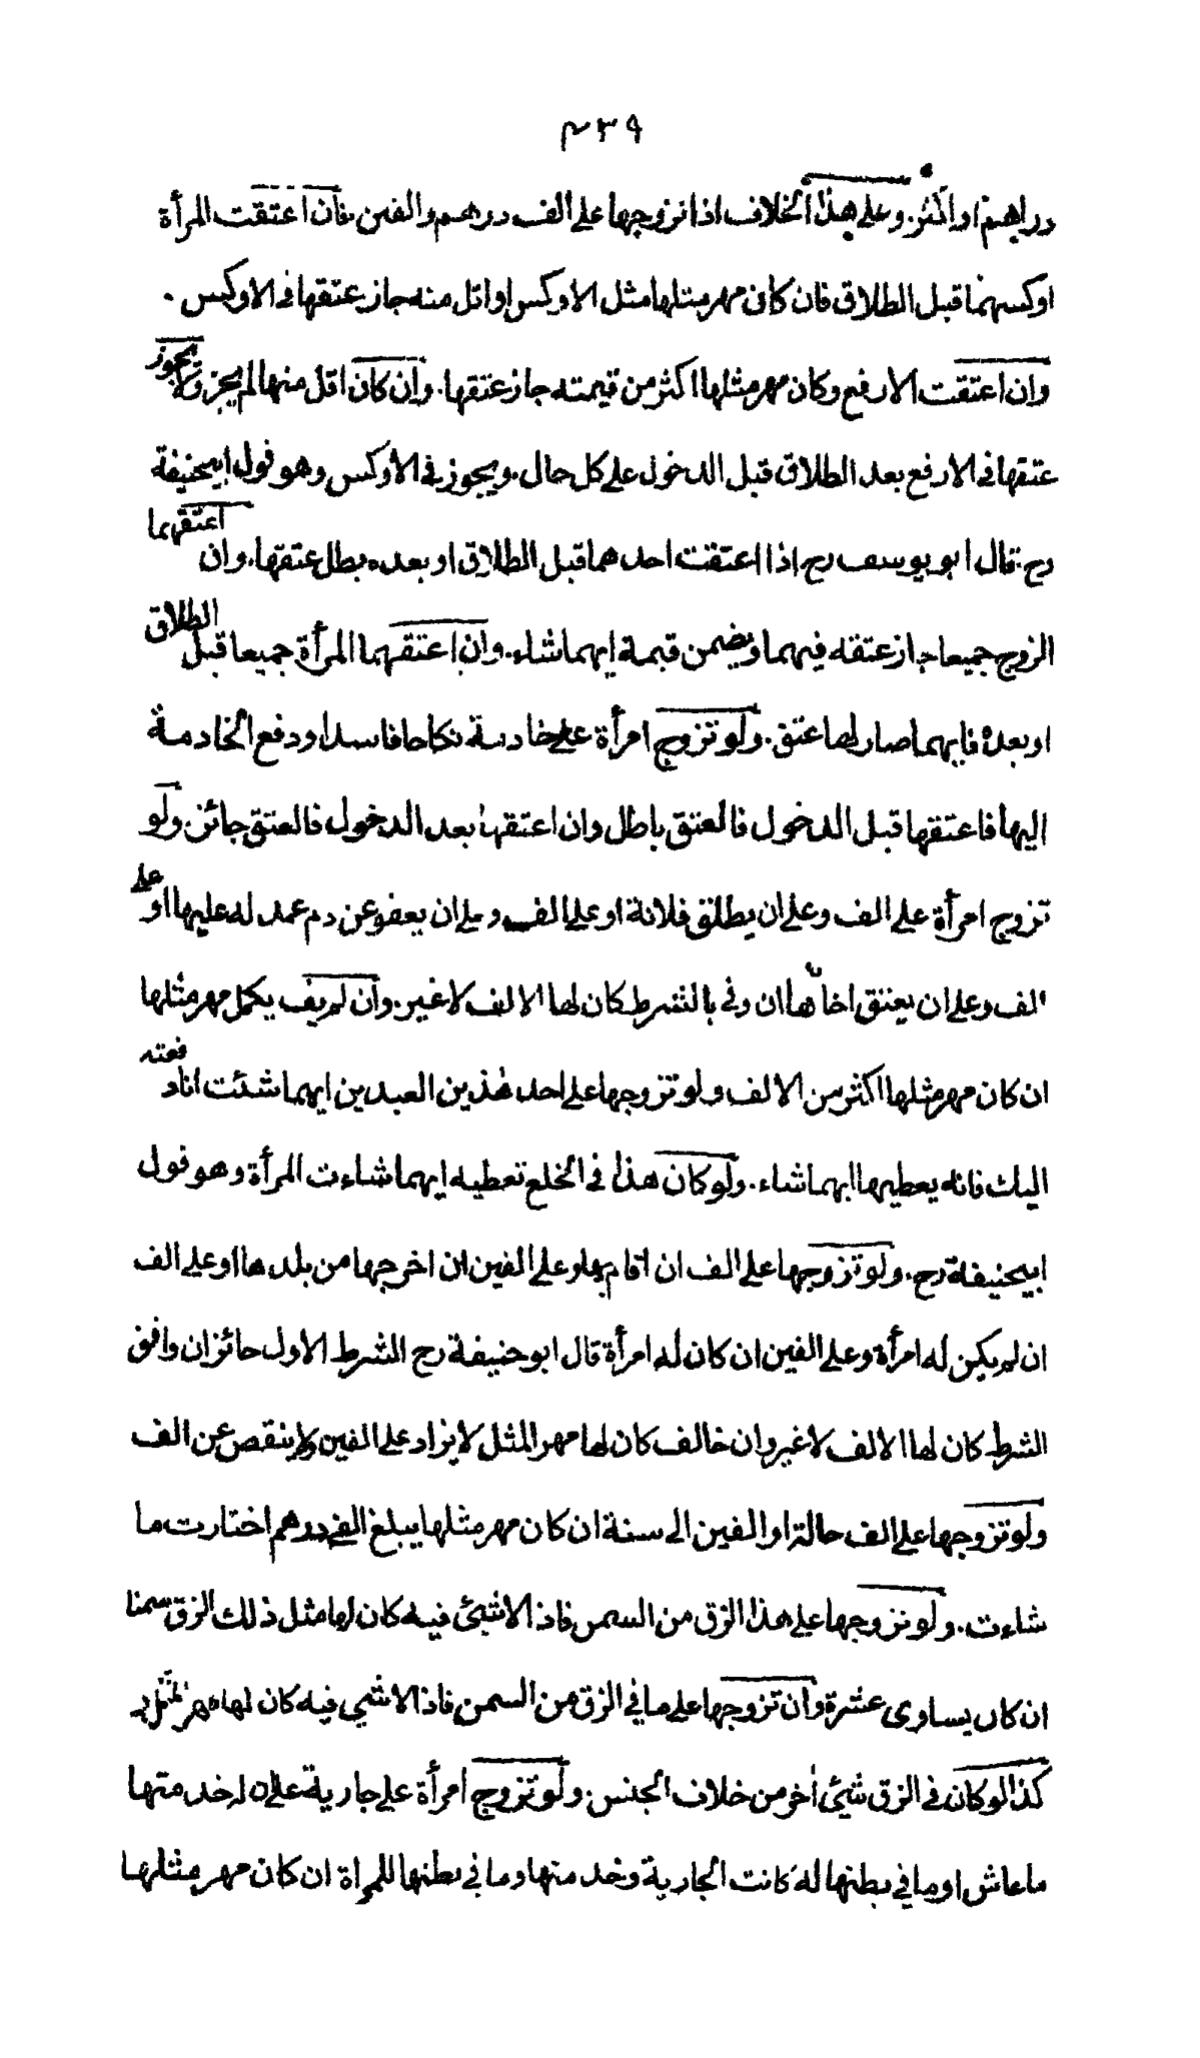 ٤٣٩
دراهم او اكثر. وعلى هذا الخلاف اذا تزوجها على الف درهم والفين. فان اعتقت المرأة
اوكسهما قبل الطلاق فان كان مهر مثلها مثل الاوكس او اقل منه جاز عتقها فى الاوكس.
وان اعتقت الارفع وكان مهر مثلها اكثر من قيمته جاز عتقها. وان كان اقل منها لم يجز ولا يجوز
عتقها فى الارفع بعد الطلاق قبل الدخول على كل حال. ويجوز فى الأوكس وهو قول ابيحنيفة
رح. قال ابو يوسف رح اذا اعتقت احدهما قبل الطلاق او بعده بطل عتقها. وان اعتقهما
الزوج جميعا جاز عتقه فيهما ويضمن قيمة ايهما شاء. وان اعتقهما المرأة جميعا قبل الطلاق
او بعده فايهما صار لها عتق. ولو تزوج امرأة على خادمة نكاحا فاسدا ودفع الخادمة
اليها فاعتقها قبل الدخول فالعتق باطل وان اعتقها بعد الدخول فالعتق جائز. ولو
تزوج امرأة على الف وعلى ان يطلق فلانة او على الف وعلى ان يعفو عن دم عمد له عليها او على
الف وعلى ان يعتق اخاها ان وفى بالشرط كان لها الالف لا غير. وان لم يف يكمل مهر مثلها
ان كان مهر مثلها اكثر من الالف ولو تزوجها على احد هذين العبدين ايهما شئت انا دفعته
اليك فانه يعطيها ايهما شاء. ولو كان هذا فى الخلع تعطيه ايهما شاءت المرأة وهو قول
ابيحنيفة رح. ولو تزوجها على الف ان اقام بها وعلى الفين ان اخرجها من بلدها او على الف
ان لم يكن له امرأة وعلى الفين ان كان له امرأة قال ابو حنيفة رح الشرط الاول جائز ان وافق
الشرط كان لها الالف لا غير وان خالف كان لها مهر المثل لا يزاد على الفين ولا ينقص عن الف
ولو تزوجها على الف حالة او الفين الى سنة ان كان مهر مثلها يبلغ الفى درهم اختارت ما
شاءت. ولو تزوجها على هذا الزق من السمن فاذا لا شئ فيه كان لها مثل ذلك الزق سمنا
ان كان يساوى عشرة وان تزوجها على ما في الزق من السمن فاذا لا شيى فيه كان لها مهر المثل
كذا لو كان فى الزق شيئ اخر من خلاف الجنس. ولو تزوج امرأة على جارية على ان له خدمتها
ما عاش او ما في بطنها له كانت الجارية وخدمتها وما في بطنها للمراة ان كان مهر مثلها